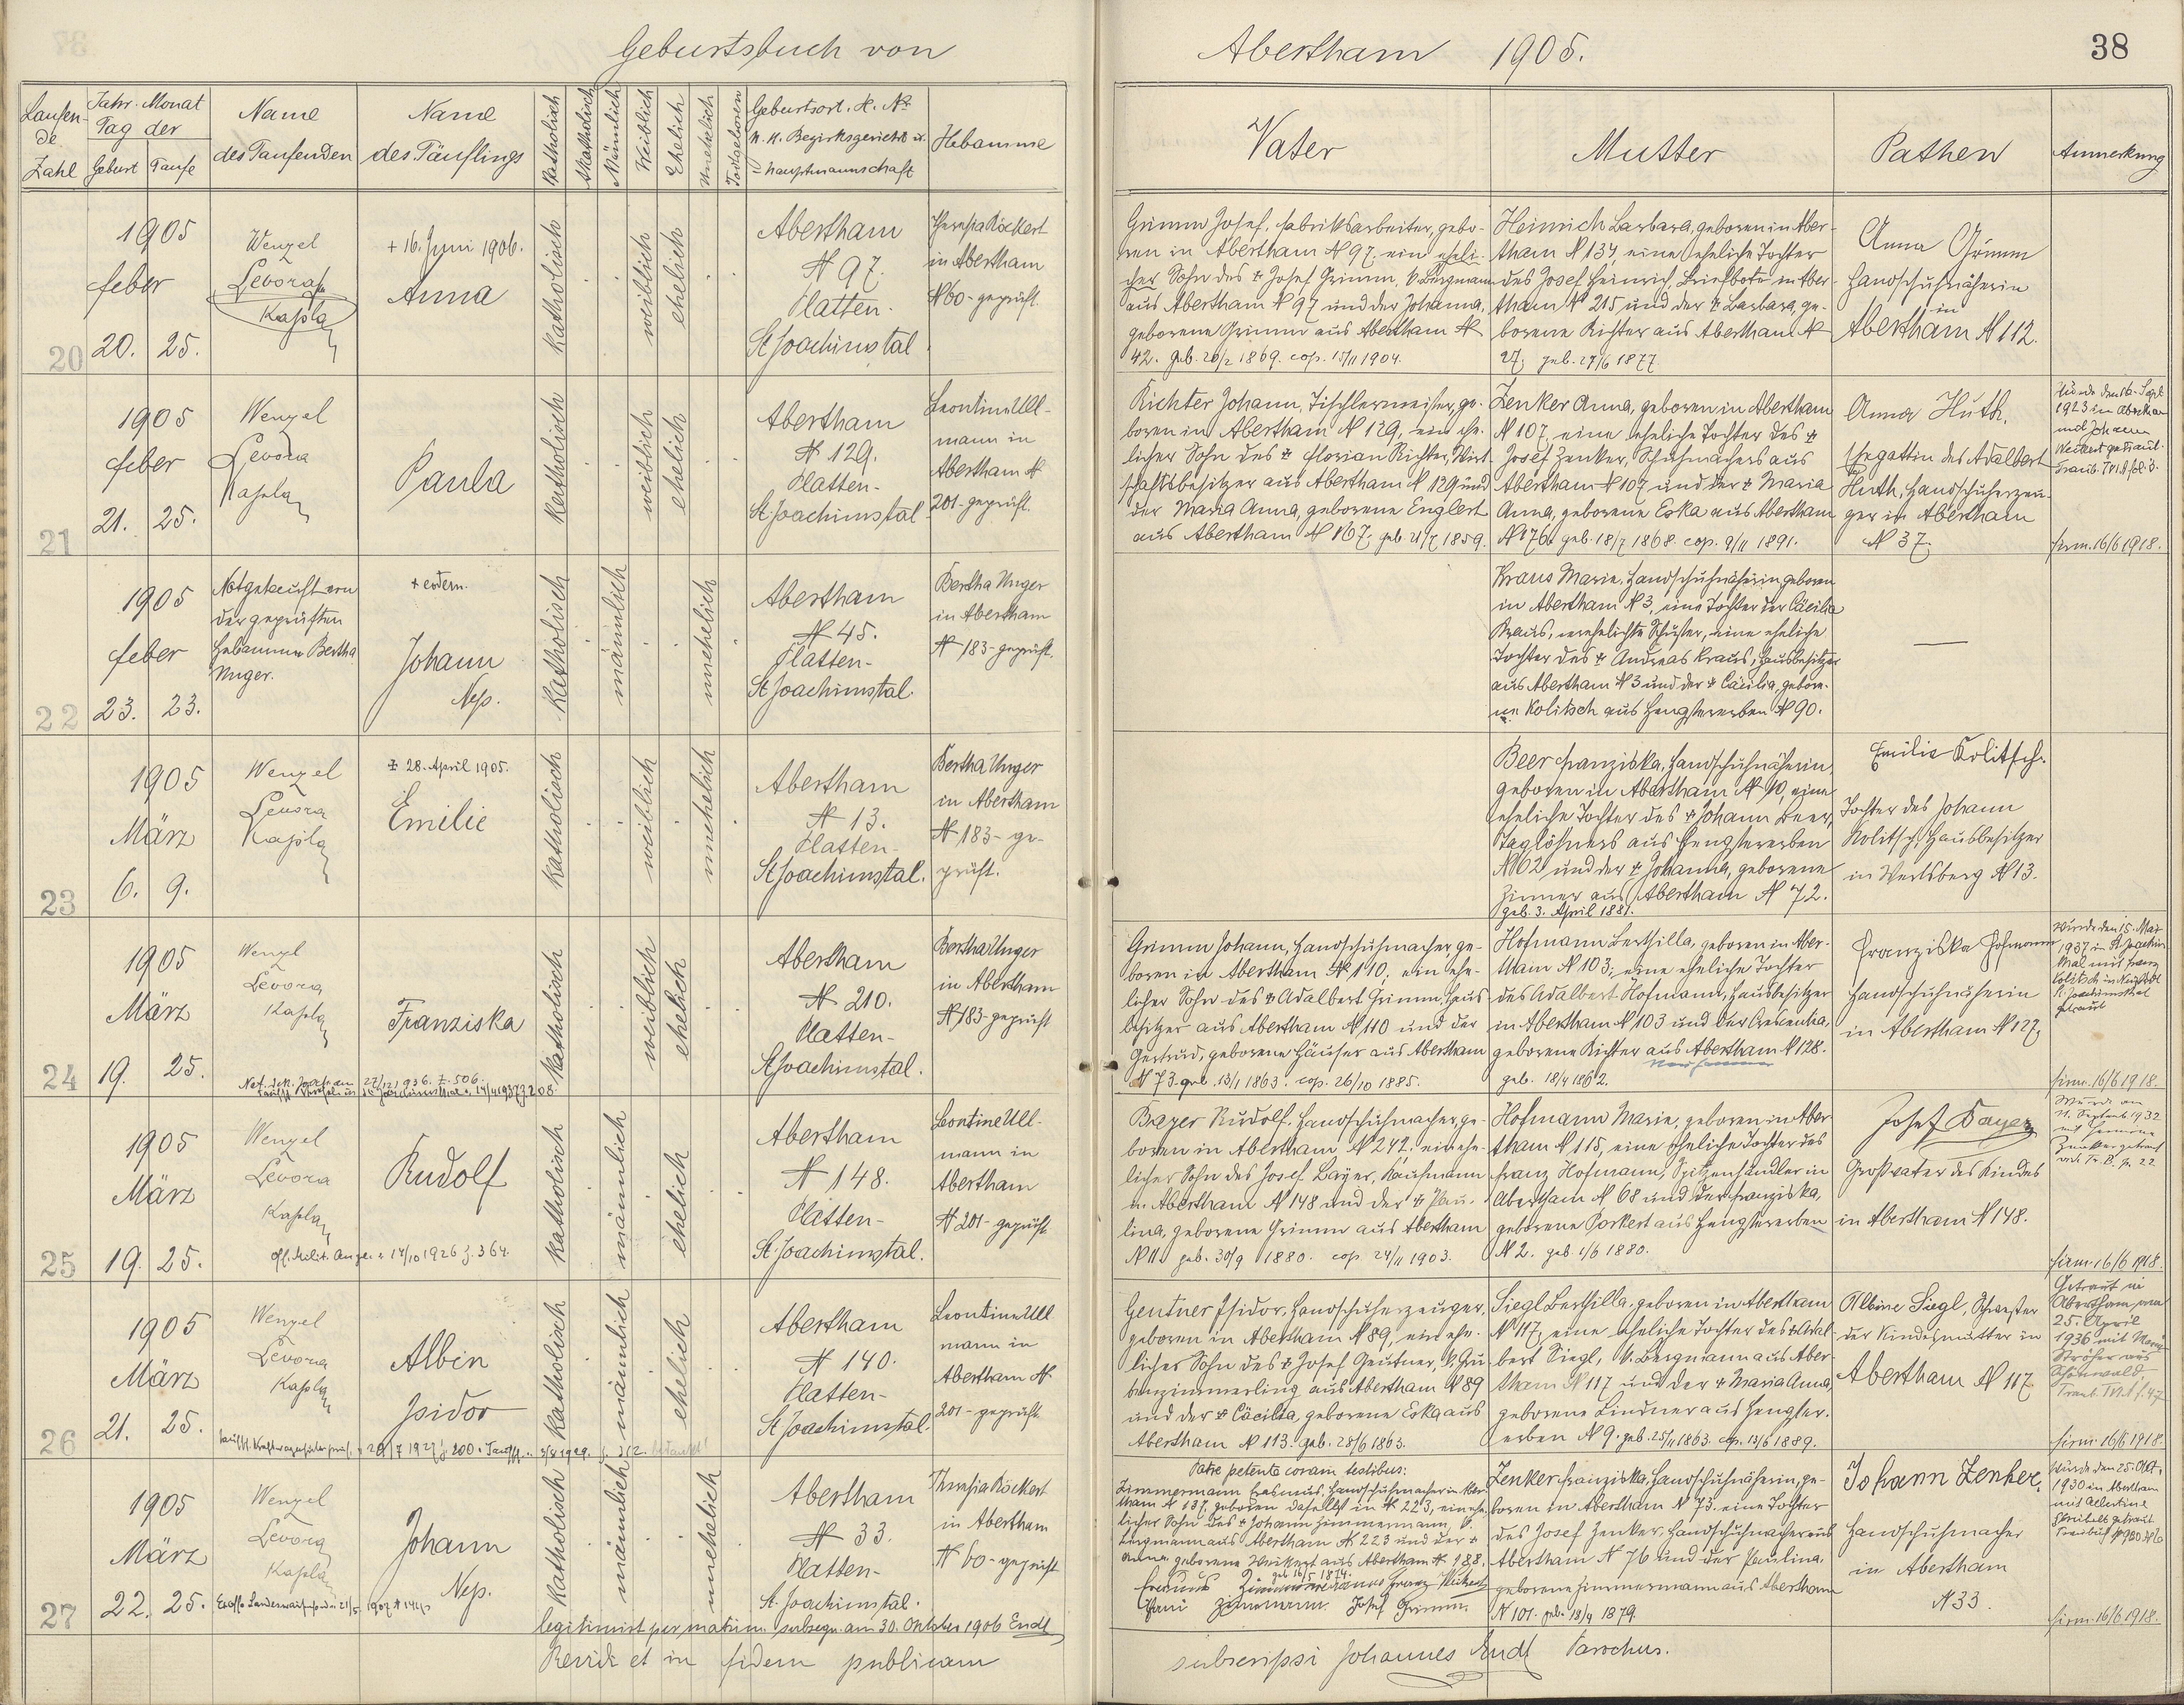 Geburtsbuch von
Abertham 1905.
38
Laufen-
de
Zahl
Jahr. Monat
Tag der
Geburt Taufe
Name
des Taufenden
Name
des Täuflings
Katholisch
Akatholisch
Männlich
Weiblich
Ehelich
Unehelich
Todtgeboren
Geburtsort. H. №
K. K. Bezirksgericht u.
Hauptmannschaft
Hebamme
Vater
Mutter
Pathen
Anmerkung
20
1905
feber
20. 25.
Wenzel
Levora
Kapla
+ 16. Juni 1906.
Anna
katholisch
weiblich
ehelich
Abertham
N 97.
Platten-
St Joachimstal
Theresia Röckert
in Abertham
N 60 - geprüft.
Grimm Josef, Fabriksarbeiter, gebo-
ren in Abertham N 97, ein eheli-
cher Sohn des + Josef Grimm, V. Bergmann
aus Abertham N 97 und der Johanna,
geborene Grimm aus Abertham N
42. geb. 26/2 1869. cop. 15/11 1904.
Heinrich Barbara, geboren in Aber-
tham N 134, eine eheliche Tochter
des Josef Heinrich, Briefbote in Aber-
tham N 215 und der + Barbara, ge-
borene Richter aus Abertham N
27; geb. 27/6 1877.
Anna Grimm
Handschuhnäherin
in
Abertham N 112.
21
1905
feber
21. 25.
Wenzel
Levora
Kapla
Paula
katholisch
weiblich
ehelich
Abertham
N 129.
Platten-
St. Joachimstal
Leontine Ull-
mann in
Abertham N
201 - geprüft.
Richter Johann, Tischlermeister, ge-
boren in Abertham N 129, ein ehe-
licher Sohn des + Florian Richter, Wirt-
schaftsbesitzer aus Abertham N 129 und
der Maria Anna, geborene Englert
aus Abertham N 167; geb 21/7 1859.
Zenker Anna, geboren in Abertham
N 107, eine eheliche Tochter des +
Josef Zenker, Schuhmachers aus
Abertham N 107 und der + Maria
Anna, geborene Eska aus Abertham
N 76. geb. 18/7 1868. cop. 9/11 1891.
Anna Huth,
Ehegattin des Adalbert
Huth, Handschuherzeu-
ger in Abertham
N 37.
1923 in Abertham
mit Johann
Weikert getraut.
firm. 16/6 1918.
22
1905
feber
23. 23.
Notgetauft von
der geprüften
Hebamme Bertha
Unger.
+ eodem.
Johann
Nep.
Katholisch
männlich
unehelich
Abertham
N 45.
Platten-
St Joachimstal.
Bertha Unger
in Abertham
N 183 - geprüft.
Kraus Marie, Handschuhnäherin, geboren
in Abertham N 3, eine Tochter der Cäcilia
Kraus, verehelichte Schuster, eine eheliche
Tochter des + Andreas Kraus, Hausbesitzer
aus Abertham N 3 und der + Cäcilia, gebore-
ne Kolitsch aus Hengstererben N 90.
23
1905
März
6. 9.
Wenzel
Levora
Kapla
+ 28. April 1905.
Emilie
katholisch
weiblich
unehelich
Abertham
N 13.
Platten-
St Joachimstal.
Bertha Unger
in Abertham
N 183 - ge-
prüft.
Beer Franziska, Handschuhnäherin,
geboren in Abertham N 10, eine
eheliche Tochter des + Johann Beer,
Taglöhners aus Hengstererben
N 62 und der + Johanna, geborene
Zinner aus Abertham N 72.
geb. 3. April 1881.
Emilie Kolitsch.
Tochter des Johann
Kolitsch, Hausbesitzer
in Werlsberg N 13.
24
1905
März
19. 25.
Wenzl
Levora
Kapla
Franziska
katholisch
weiblich
ehelich
Abertham
N 210.
Platten-
St Joachimstal.
Bertha Unger
in Abertham
N 183 - geprüft
Grimm Johann, Handschuhmacher, ge-
boren in Abertham N 110, ein ehe-
licher Sohn des + Adalbert Grimm, Haus-
besitzer aus Abertham N 110 und der
Gertrud, geborene Häuser aus Abertham
N 73. geb. 13/1 1863. cop. 26/10 1885.
Hofmann Berthilla, geboren in Aber-
tham N 103, eine eheliche Tochter
des Adalbert Hofmann, Hausbesitzer
in Abertham N 103 und der Crescentia,
geborene Richter aus Abertham N 128.
geb. 18/4 1862.
Franziska Hofmann
Handschuhnäherin
in Abertham N 127.
wurde den 15. Mai
1937 in St. Joachims-
thal mit Franz
Kolitsch
getraut
firm. 16/6 1918.
25
1905
März
19. 25.
Wenzel
Levora
Kapla
14/10 1926 z. 364.
Rudolf
katholisch
männlich
ehelich
Abertham
N 148.
Platten-
St. Joachimstal.
Leontine Ull-
mann in
Abertham
N 201 - geprüft
Bayer Rudolf, Handschuhmacher, ge-
boren in Abertham N 242, ein ehe-
licher Sohn des Josef Bayer, Kaufmann
in Abertham N 148 und der + Pau-
lina, geborene Grimm aus Abertham
N 112 geb. 30/9 1880. cop 24/11 1903.
Hofmann Marie, geboren in Aber
tham N 115, eine eheliche Tochter des
Franz Hofmann, Spitzenhändler in
Abertham N 68 und der Franziska,
geborene Porkert aus Hengstererben
N 2. geb 1/6 1880.
Josef Bayer
Großvater des Kindes
in Abertham N 148.
Wurde am
Zenker getraut
firm. 16/6 1918.
26
1905
März
21. 25.
Wenzel
Levora
Kapla
Albin
Isidor
katholisch
männlich
ehelich
Abertham
N 140.
Platten-
St Joachimstal.
Leontine Ull
mann in
Abertham N.
201 - geprüft
Gentner Isidor, Handschuherzeuger,
geboren in Abertham N 89, ein ehe-
licher Sohn des + Josef Gentner, V. Gru-
benzimmerling aus Abertham N 89
und der + Cäcilia, geborene Eska aus
Abertham N 113. geb. 28/6 1863.
Siegl Berthilla, geboren in Abertham
N 117, eine eheliche Tochter des + Adal
bert Siegl, V. Bergmann aus Aber-
tham N 117 und der + Maria Anna,
geborene Lindner aus Hengster-
erben N 9. geb. 25/11 1863. cop. 13/5 1889.
Albine Siegl, Schwester
der Kindesmutter in
Abertham N 117
Getraut in
Abertham am
25. April
1936 mit
Ströher aus
Schönwald
firm. 16/6 1918.
27
1905
März
22. 25.
Wenzel
Levora
Kapla
Johann
Nep.
katholisch
männlich
unehelich
Abertham
N 33.
Platten-
St. Joachimstal.
Theresia Röckert
in Abertham
N 60 - geprüft
Patre petente coram testibus:
Zimmermann Erasmus, Handschuhmacher in Aber-
tham N 137, geboren daselbst in N 223, ein ehe-
licher Sohn des + Johann Zimmermann, V.
Bergmann aus Abertham N 223 und der +
Anna, geborene Weikert aus Abertham N 188.
geb 16/5 1874.
Erasmus Zimmermann Franz Weikert
Zimmermann Josef Grimm
Zenker Franziska, Handschuhnäherin, ge-
boren in Abertham N 73, eine Tochter
des Josef Zenker, Handschuhmacher aus
Abertham N 76 und der Paulina,
geborene Zimmermann aus Abertham
N 101. geb. 18/9 1879.
Johann Zenker,
Handschuhmacher
in Abertham
N 33.
wurde den 25. Okt.
1930 in Abertham
mit Albertine
getraut
firm. 16/6 1918.
legitimirt per matrim. subsequ. am 30. Oktober 1906 Endt
Revidi et in fidem publicam
subscripsi Johannes Endt Parochus.